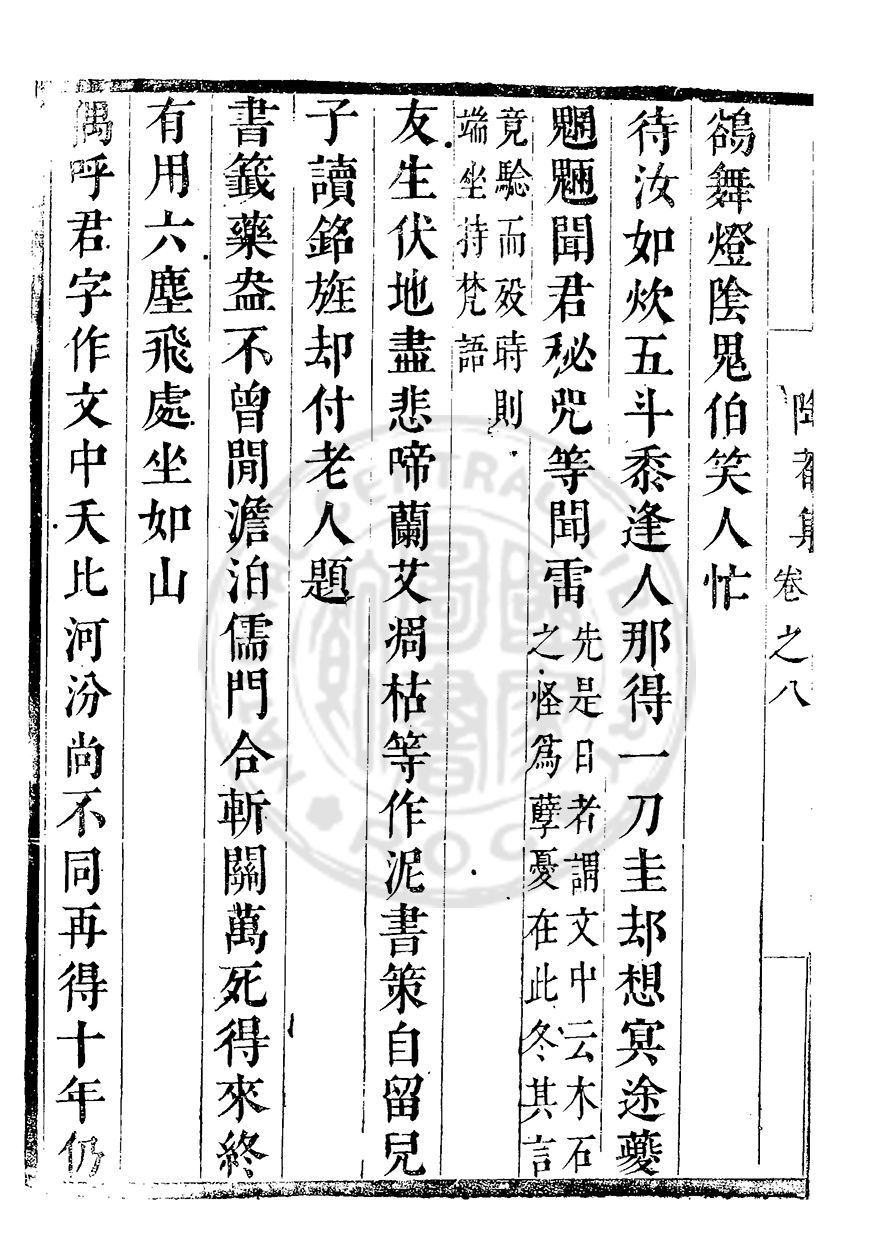 卷之八
鵒舞燈陰鬼伯笑人忙
待汝如炊五斗黍逢人那得一刀圭却想冥途夔
魍魎聞君秘咒等聞雷
先是日者謂文中云木石
之怪爲孽憂在此冬其言
竟驗而歿時則
端坐持梵語
友生伏地盡悲啼蘭艾凋枯等作泥書策自留兒
子讀銘旌却付老人題
書籤藥盎不曾閒澹泊儒門合斬關萬死得來終
有用六塵飛處坐如山
偶呼君字作文中夭比河汾尚不同再得十年仍